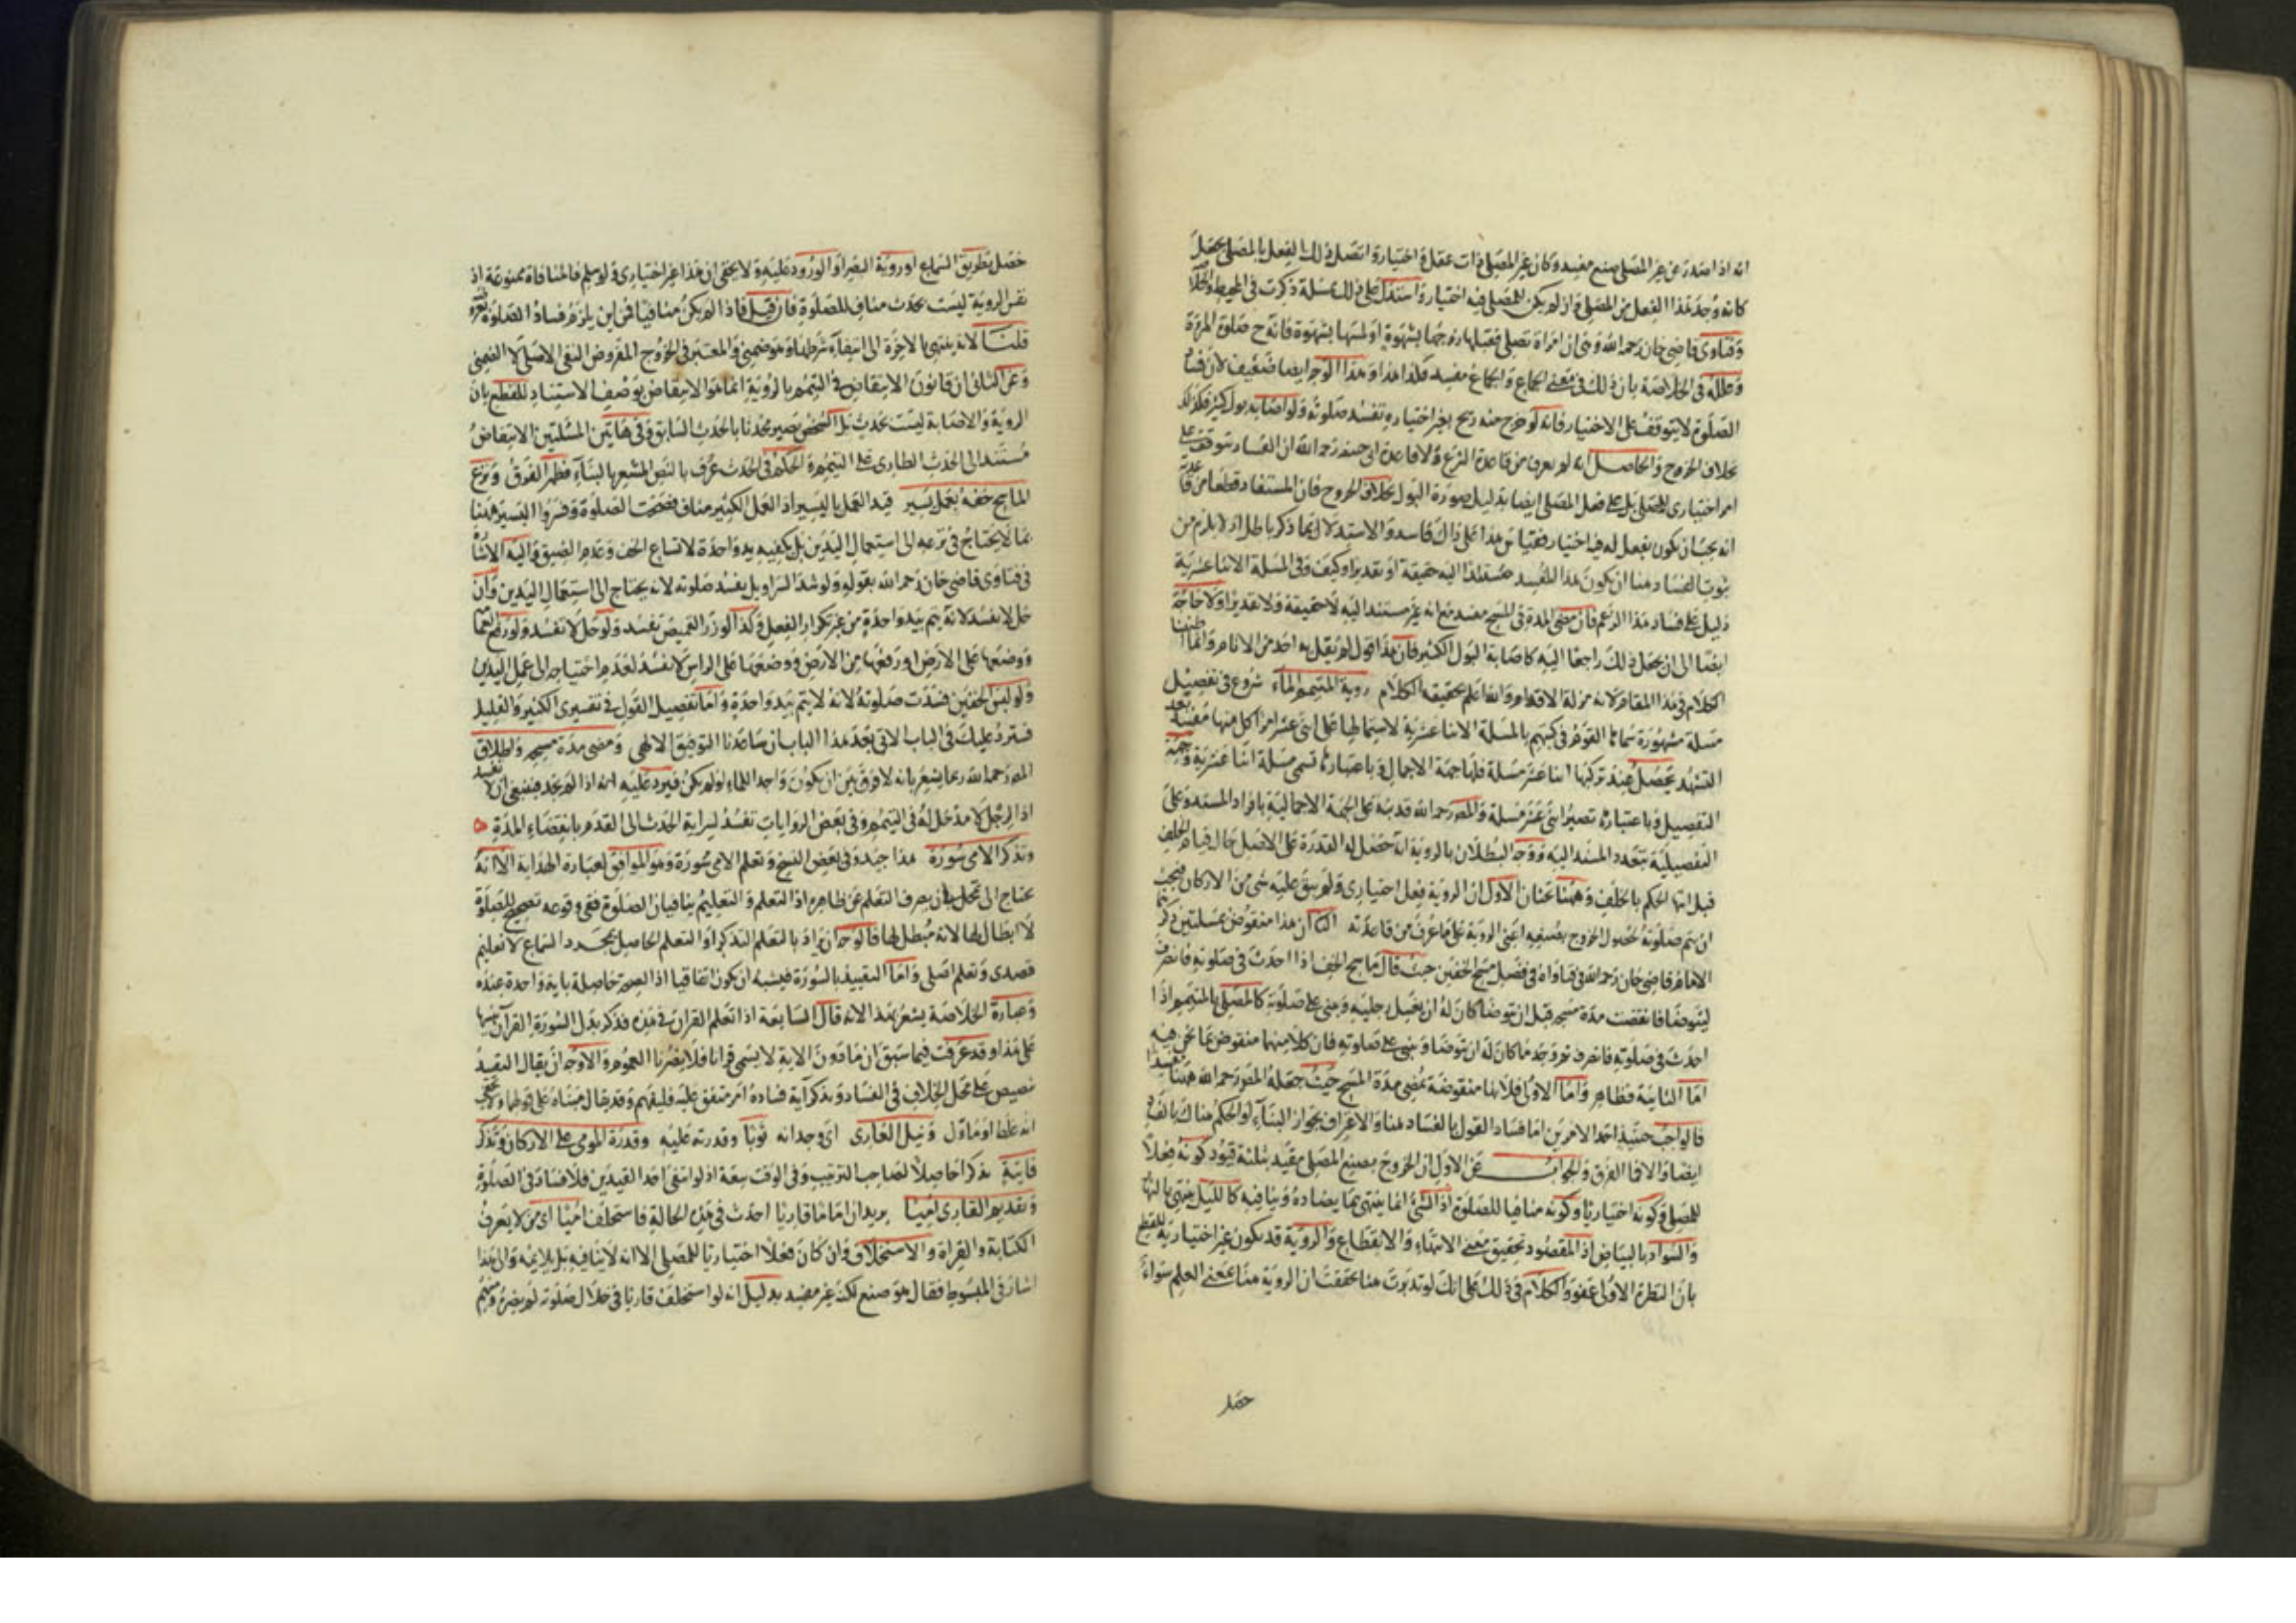 انه اذا صدر عن غير المصلى صنع مفسد وكان غير المصلى ذات عقل واختيار واتصل ذلك الفعل بالمصلى يجعل
كانه وجد هذا الفعل من المصلى وان لم يكن للمصلى فيه اختيار واستدل على ذلك بمسئلة ذكرت فى المحيط
وفتاوى قاضى خان رحمه الله وهى ان امراة تصلى فقبلها زوجها بشهوة او لمسها بشهوة فانه ح صلوة المرءة
وعلله فى الخلاصة بان ذلك فى معنى الجماع والجماع مفسد فكذا هذا وهذا الوجه ايضا ضعيف لان فساد
الصلوة لا يتوقف على الاختيار فانه لو خرج منه ريح بغير اختياره تفسد صلوته ولو اصابه بول كثير فكذلك
بخلاف الخروج والحاصل انه لم يعرف من قاعدة الشرع ولا قاعدة ابى حنيفة رحمه الله ان الفساد يتوقف على
امر اختيارى للمصلى بل على فعل المصلى ايضا بدليل صورة البول بخلاف الخروج فان المستفاد قطعا من
انه يجب ان يكون بفعل له فيه اختيار فقياس هذا على ذاك فاسد والاستدلال بما ذكر باطل اذ لا يلزم من
ثبوت الفساد هنا ان يكون هذا المفسد مستندا اليه حقيقة او تقديرا وكيف وفى المسئلة الاثنا عشرية
دليل على فساد هذا الزعم فان مضى المدة فى المسح مفسد مع انه غير مستند اليه لا حقيقة ولا تقديرا ولا حاجة
ايضا الى ان يجعل ذلك راجعا اليه كاصابة البول الكثير فان هذا قول لم يقل به احد من الانام وانما اطنبنا
الكلام فى هذا المقام لانه مزلة الاقدام والله اعلم بحقيقة الكلام روية المتيمم الماء شروع فى تفصيل
مسئلة مشهورة سماها القوم فى كتبهم بالمسئلة الاثنا عشرية لاشتمالها على اثنى عشر امرا كل منها مفسد بعد
التشهد يحصل عند تركبها اثنا عشر مسئلة فلها جهة الاجمال وباعتبارها تسمى مسئلة اثنا عشرية وجهة
التفصيل وباعتباره تصير اثنى عشر مسئلة والمص رحمه الله قد نبه على الجهة الاجمالية بافراد المسند وعلى
التفصيلية بتعدد المسند اليه ووجه البطلان بالروية انه حصل له القدرة على الاصل حال قيام الخلف
قبل انتها الحكم بالخلف وههنا بحثان الاول ان الروية فعل اختيارى ولم يبق عليه شى من الاركان فيجب
ان يتم صلوته لحصول الخروج بصنعه اعنى الروية على ما عرف من قاعدته الثانى ان هذا منقوض بمسئلتين ذكرهما
الامام قاضى خان رحمه الله فى فتاواه فى فصل مسح الخفين حيث قال ماسح الخف اذا احدث فى صلوته فانصرف
ليتوضا فانقضت مدة مسحه قبل ان توضا كان له ان يغسل رجليه ويبنى على صلوته كالمصلى بالتيمم اذا
احدث فى صلوته فانصرف ثم وجد ما كان له ان توضا ويبنى على صلوته فان كلا منهما منقوض بما نحن فيه
اما الثانية فظاهر واما الاولى فلانها منقوضة بمضى مدة المسح حيث جعله المص رحمه الله ههنا مفسدا
فالواجب حينئذ احد الامرين اما فساد القول بالفساد هنا والاعتراف بجواز البناء او الحكم هناك بالفساد
ايضا والا فما الفرق والجواب عن الاول ان الخروج بصنع المصلى مقيد بثلثة قيود كونه فعلا
للمصلى وكونه اختياريا وكونه منافيا للصلوة اذ الشئ انما ينتهى بما يضاده وينافيه كالليل ينتهى بالنهار
والسواد بالبياض اذ المقصود تحقيق معنى الانتهاء والانقطاع والروية قد يكون غير اختيارية للقطع
بان النظرة الاولى عفو والكلام فى ذلك على انك لو تدبرت هنا تحققت ان الروية هنا بمعنى العلم سواء
حصل
حصل بطريق السماع او روية البصر او الورود عليه ولا يخفى ان هذا غير اختيارى ولو سلم فالمنافاة ممنوعة اذ
نفس الروية ليست بحدث مناف للصلوة فان قيل فاذا لم يكن منافيا فمن اين يلزم فساد الصلوة
قلنا لانه ينتهى بالاخرة الى انتفاء شرطها وهو ضمنى والمعتبر فى الخروج المفروض النفى الاصلى لا الضمنى
وعن الثانى ان قانون الانتقاض فى التيمم بالروية انما هو الانتقاض بوصف الاستناد للقطع بان
الروية والاصابة ليست بحدث بل الشخص يصير محدثا بالحدث السابق وفى هاتين المسئلتين الانتقاض
مستند الى الحدث الطارى على التيمم والحكم فى الحدث عرف بالنص المشعر بالبناء فظهر الفرق ونزع
الماسح خفه بعمل يسير قيد العمل باليسير اذ العمل الكثير مناف فتحت الصلوة وفسروا اليسير ههنا
بما لا يحتاج فى نزعه الى استعمال اليدين بل يكفيه يد واحدة لاتساع الخف وعدم الضيق واليه الاشارة
فى فتاوى قاضى خان رحمه الله بقوله ولو شد السراويل يفسد صلوته لانه يحتاج الى استعمال اليدين وان
حل لا تفسد لانه يتم بيد واحدة من غير تكرار الفعل وكذا لو زر القميص تفسد ولو حل لا تفسد ولو رفع العمامة
ووضعها على الارض او رفعها من الارض ووضعها على الراس لا تفسد لعدم احتياجه الى عمل اليدين
ولو لبس الخفين فسدت صلوته لانه لا يتم بيد واحدة واما تفصيل القول فى تفسيرى الكثير والقليل
فسترد عليك فى الباب الاتى بعد هذا الباب ان ساعدنا التوفيق الالهى ومضى مدة مسحه واطلاق
المص رحمه الله ربما يشعر بانه لا فرق بين ان يكون واجد الماء او لم يكن فيرد عليه انه اذا لم يجد فينبغى ان لا تفسد
اذ الرجل لا مدخل له فى التيمم وفى بعض الروايات تفسد لسراية الحدث الى القدم بانقضاء المدة
وتذكر الامى سورة هذا جيد وفى بعض النسخ وتعلم الامى سورة وهو الموافق لعبارة الهداية الا انه
يحتاج الى تمحل بان يصرف التعلم عن ظاهره اذ التعلم والتعليم ينافيان الصلوة ففى وقوعه تصحيح للصلوة
لا ابطال لها لانه مبطل لها فالوجه ان يراد بالتعلم التذكر او التعلم الحاصل بمجرد السماع لا تعليم
قصدى وتعلم اصلى واما التقييد بالسورة فيشبه ان يكون اتفاقيا اذ الصحة حاصلة باية واحدة عنده
وعبارة الخلاصة يشعر بهذا لانه قال السابعة اذا تعلم القران فى هذه فذكر بدل السورة القران
على هذا وقد عرفت فيما سبق ان ما دون الاية لا يسمى قرانا فلا يضرنا العموم والاوجه ان يقال التقييد
تنصيص على محل الخلاف فى الفساد وبذكر آية فساده امر متفق عليه فليفهم وقد يقال مبناه على قولهما
انه غلط او ماول ونيل العارى اى وجدانه ثوبا وقدرته عليه وقدرة المومى على الاركان وتذكر
فائتة تذكرا حاصلا لصاحب الترتيب وفى الوقت سعة اذ لو انتفى احد القيدين فلا فساد فى الصلوة
وتقديم القارى اميا يريد ان اماما قاريا احدث فى هذه الحالة فاستخلف اميا اى من لا يعرف
الكتابة والقراة والاستخلاف وان كان فعلا اختياريا للمصلى الا انه لا ينافيه بل يلايمه والى هذا
اشار فى المبسوط فقال هو صنع لكن غير مفسد بدليل انه لو استخلف قاريا فى خلال صلوته لم يضره